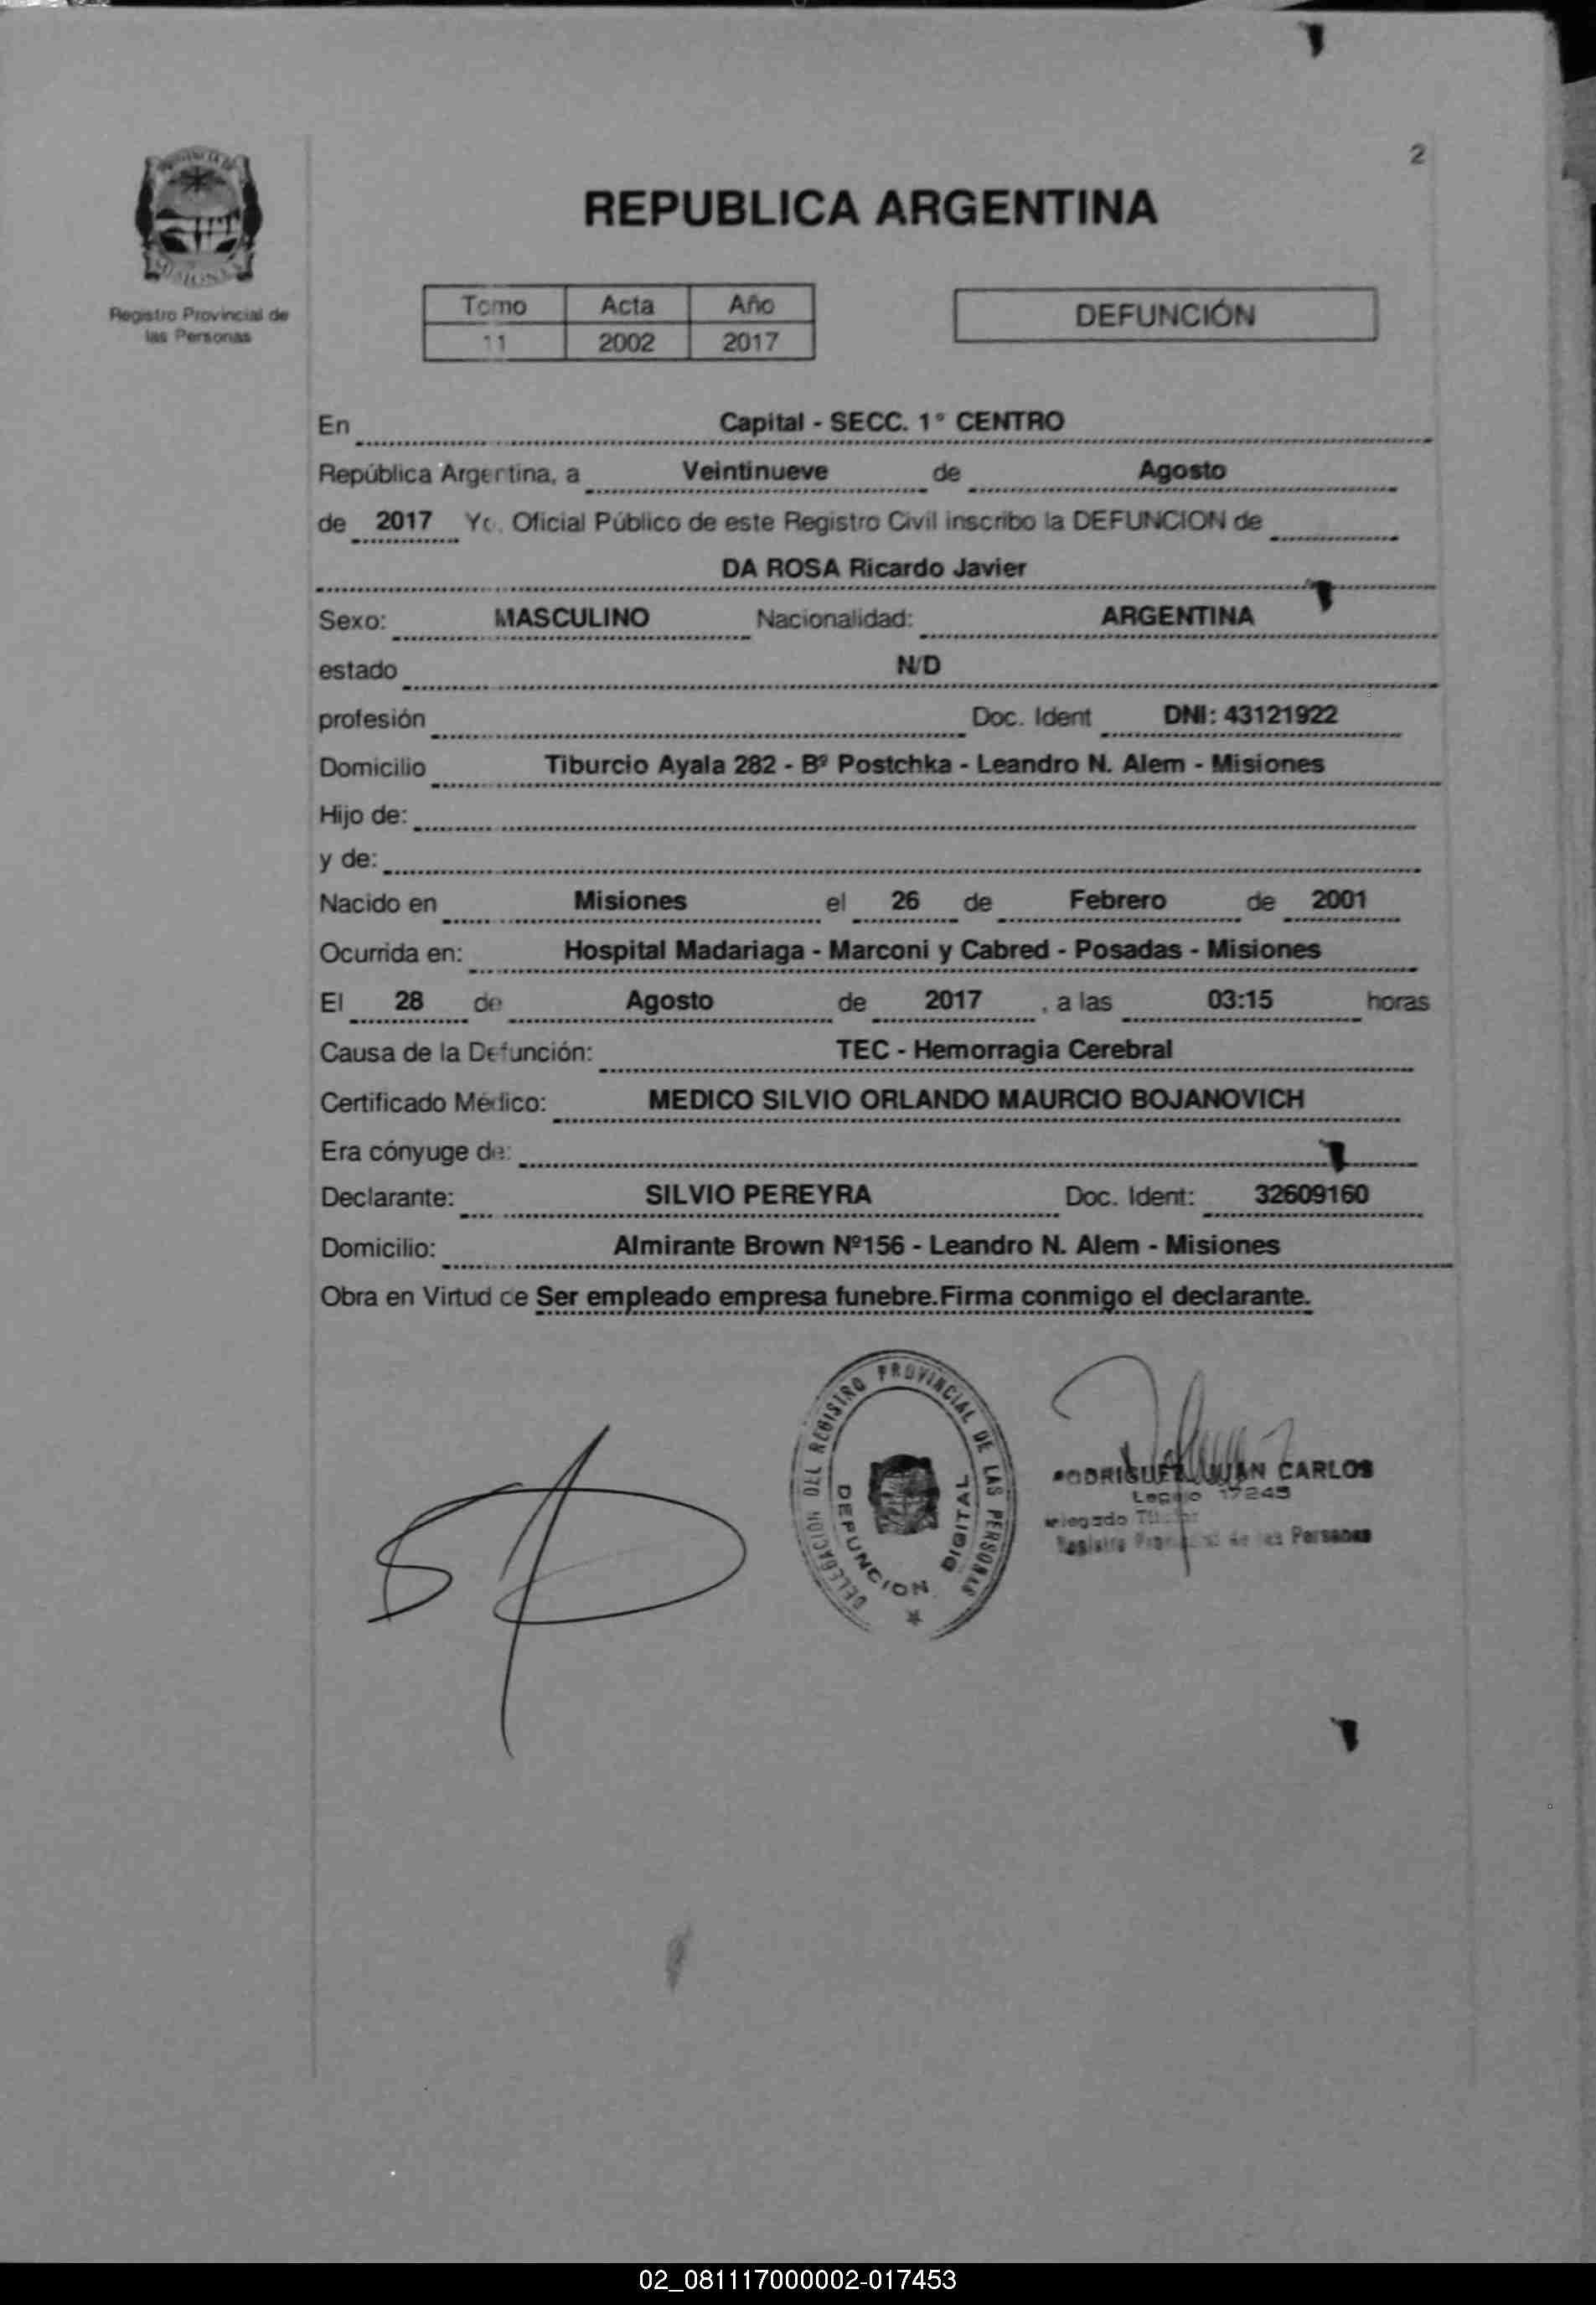 2
REPUBLICA ARGENTINA
Registro Provincial de
las Personas
Tomo Acta Año
11 2002 2017
DEFUNCIÓN
En Capital - SECC. 1° CENTRO
República Argentina, a Veintinueve de Agosto
de 2017 Yo, Oficial Público de este Registro Civil inscribo la DEFUNCION de
DA ROSA Ricardo Javier
Sexo: MASCULINO Nacionalidad: ARGENTINA
estado N/D
profesión Doc. Ident DNI: 43121922
Domicilio Tiburcio Ayala 282 - Bº Postchka - Leandro N. Alem - Misiones
Hijo de:
y de:
Nacido en Misiones el 26 de Febrero de 2001
Ocurrida en: Hospital Madariaga - Marconi y Cabred - Posadas - Misiones
El 28 de Agosto de 2017 , a las 03:15 horas
Causa de la Defunción: TEC - Hemorragia Cerebral
Certificado Médico: MEDICO SILVIO ORLANDO MAURCIO BOJANOVICH
Era cónyuge de:
Declarante: SILVIO PEREYRA Doc. Ident: 32609160
Domicilio: Almirante Brown Nº156 - Leandro N. Alem - Misiones
Obra en Virtud de Ser empleado empresa funebre.Firma conmigo el declarante.
DELEGACION DEL REGISTRO PROVINCIAL DE LAS PERSONAS
DEFUNCION DIGITAL
RODRIGUEZ JUAN CARLOS
Legajo 17245
Delegado Titular
Registro Provincial de las Personas
02_081117000002-017453